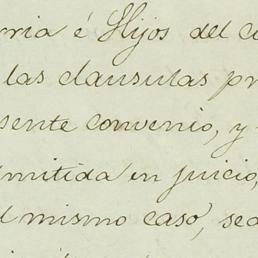 rria é Hijos del c
las clausulas pr
sente convenio, y
mitida en juicio,
l mismo caso, sea